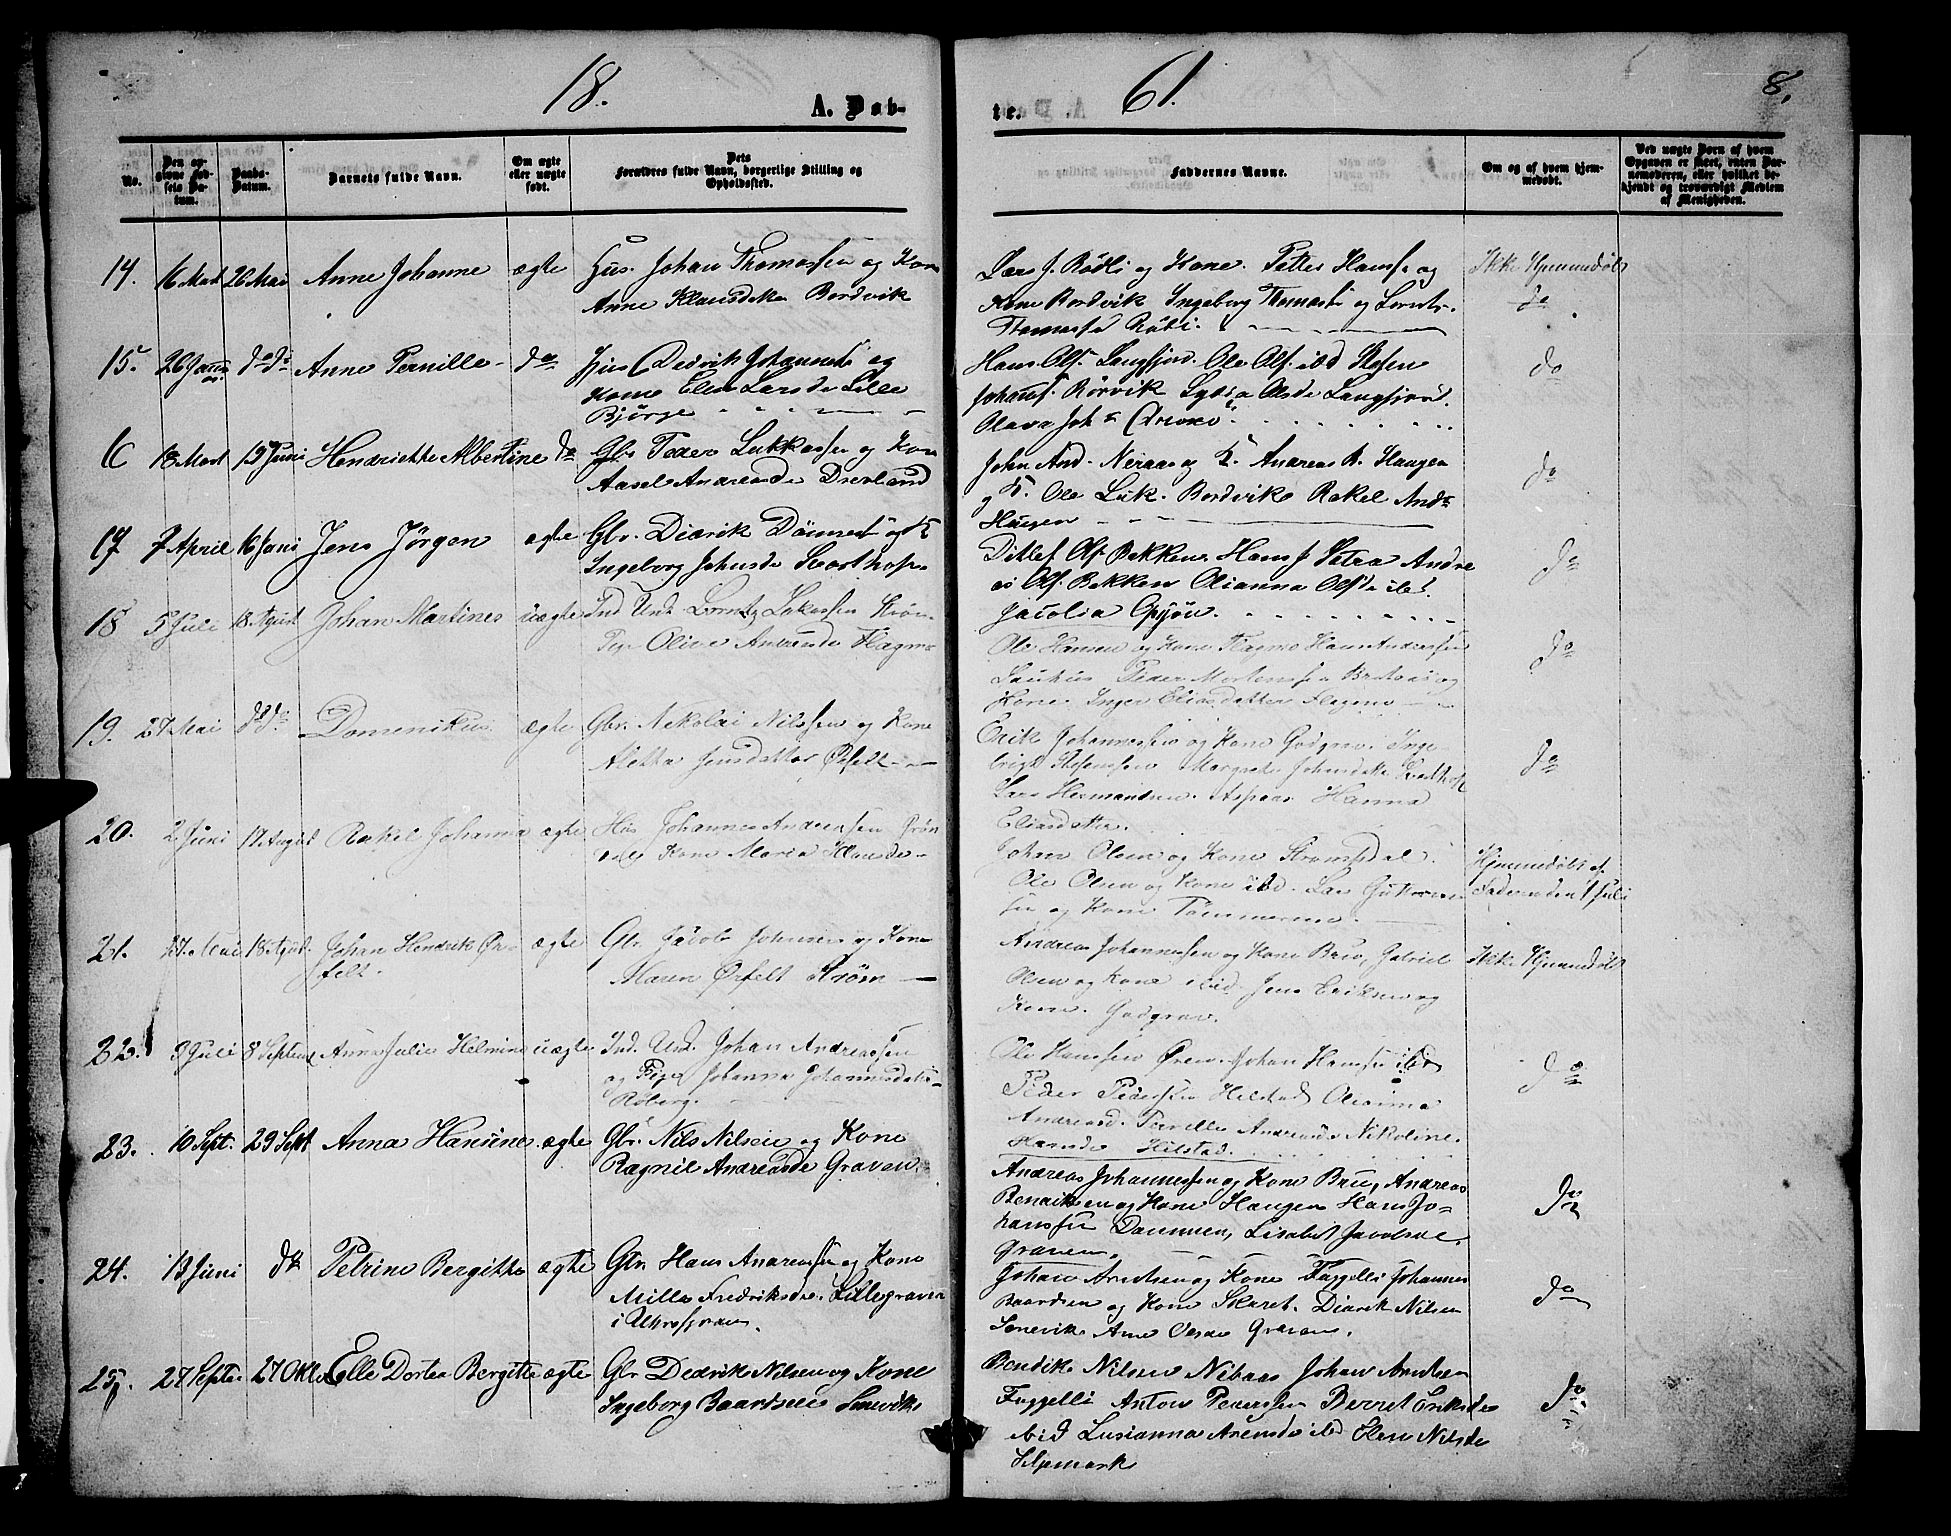 18. 61. 8.
A. Døb-
te.
No.
Den an-
givne Fød-
sels Da-
tum.
Daabs-
Datum.
Barnets fulde Navn.
Om ægte
eller uægte
født.
Dets
Forældres fulde Navn, borgerlige Stilling og
Opholdssted.
Faddernes Navne.
Om og af hvem hjem-
medøbt.
Ved uægte Børn af hvem
Opgaven er skeet, enten Bar-
nemoderen, eller hvilket be-
kjendt og troværdigt Medlem
af Menigheden.
14. 16 Mart 26 Mai Anne Johanne ægte Hus. Johan Thomassen og Kone
Anne Klausdatter Bordvik
Lars J. Rødli og Kone. Petter Hanss og
Kone Bordvik Ingeborg Thomasd og Lornts.
Thomassen Rødli.
Ikke Hjemmedøbt
do
15. 26 Januar do do Anne Pernille do Hus Didrik Johannes og
Kone Elen Larsd. Lille
Bjørge
Hans Ols. Langfjord. Ole Ols. ibd Stefen
Johans. Rörvik Olsd. Langfjord.
Olava Joh
do
6 18 Mart 19 Juni Hendrikke Albertine do Gbr Peder Lukkassen og Kone
Aasel Andreasd Drevland
John And. Neraas og K. Andreas A. Haugen
og K. Ole Luk. Bordvik Rakel Andr
Haugen
do
17 7 April 16 Juni Jens Jörgen ægte Gbr. Didrik og K
Ingeborg Johnsd Svarthop
Ditlef Ols Bakken Hans J Setra Andre
as Ols. Bakken Olianna Olsd ibd.
Jacobia
do
18 5 Juli 18 August Johan Martines uægte Ind Und. Lorntz Lukassen
Pige Olive Andreasd Flagmo
Ole Hansen og Kone Flagmo Hans Andreassen
Peder Mortensen og
Kone. Inger Eliasdatter Flagmo
do
19. 27 Mai do do Domenikus ægte Gbr. Nikolai Nilssen og Kone
Aletta Jensdatter Ørfelt
Erik Johannessen og Kone Godgrav. Inge-
brigt Stefensen Margrete Johnsdatter Svarthop
Lars Hermandsen. Aspaas Hanna
Eliasdatter.
do
20. 2 Juni 17 August Rakel Johanna ægte Hus Johannes Andreassen
Kone Maria Hansd
Johan Olsen og Kone Strømsdal.
Ole Olsen og Kone ibd. Lars
sen og Kone Tømmermo.
Hjemmedøbt af
Faderen den 1 Juli
21. 27. Mai 18 Agust. Johan Hendrik Ør-
felt.
ægte Gbr. Jacob Johnsen og Kone
Maren Ørfelt Strøm
Andreas Johannessen og Kone Bru, Gabriel
Olsen og Kone ibid. Jens Eriksen og
Kone. Godgrav.
Ikke Hjemmedøbt
22. 3 Juli 8 Septemb Anna Julie Helmine uægte Ind. Und. Johan Andreassen
og Pige Johanna Johannesdatter
Røberg.
Ole Hanssen Øren. Johan Hanssen ibd
Peder Pedersen Hilstad Olianna
Andreasd. Pernille Andreasd. Nikoline.
Hansd. Hilstad.
do
23. 10 Sept. 29 Sept Anna Hansine ægte Gbr. Nils Nilsen og Kone
Ragnil Andreasd Graven.
Andreas Johannessen og Kone Bru, Andreas
Bendiksen og Kone Haugen Hans Jo-
hanssen Daumoen, Lisabet Jacobsd.
Graven.
do
24. 13 Juni do Petrine Bergitte ægte Gbr Hans Andreassen og Kone
Mille Fredriksd. Lillegraven
i
Johan Arntsen og Kone Fuggelli Johannes
Baardsen og Kone Skaret. Didrik Nilsen
Sonevik Ane Olsd. Graven.
do
25. 27 Septe 27 Oktb Elle Dortea Bergitte ægte Gbr Dedrik Nilsen og Kone
Ingeborg Baardsen Sonevik
Bendik Nilsen Nibaas Johan Arntsen
Fuggelli Anton Pedersen Berret Eriksd.
ibid Lusianna Arensd ibd Elen Nilsd.
Selfors
do